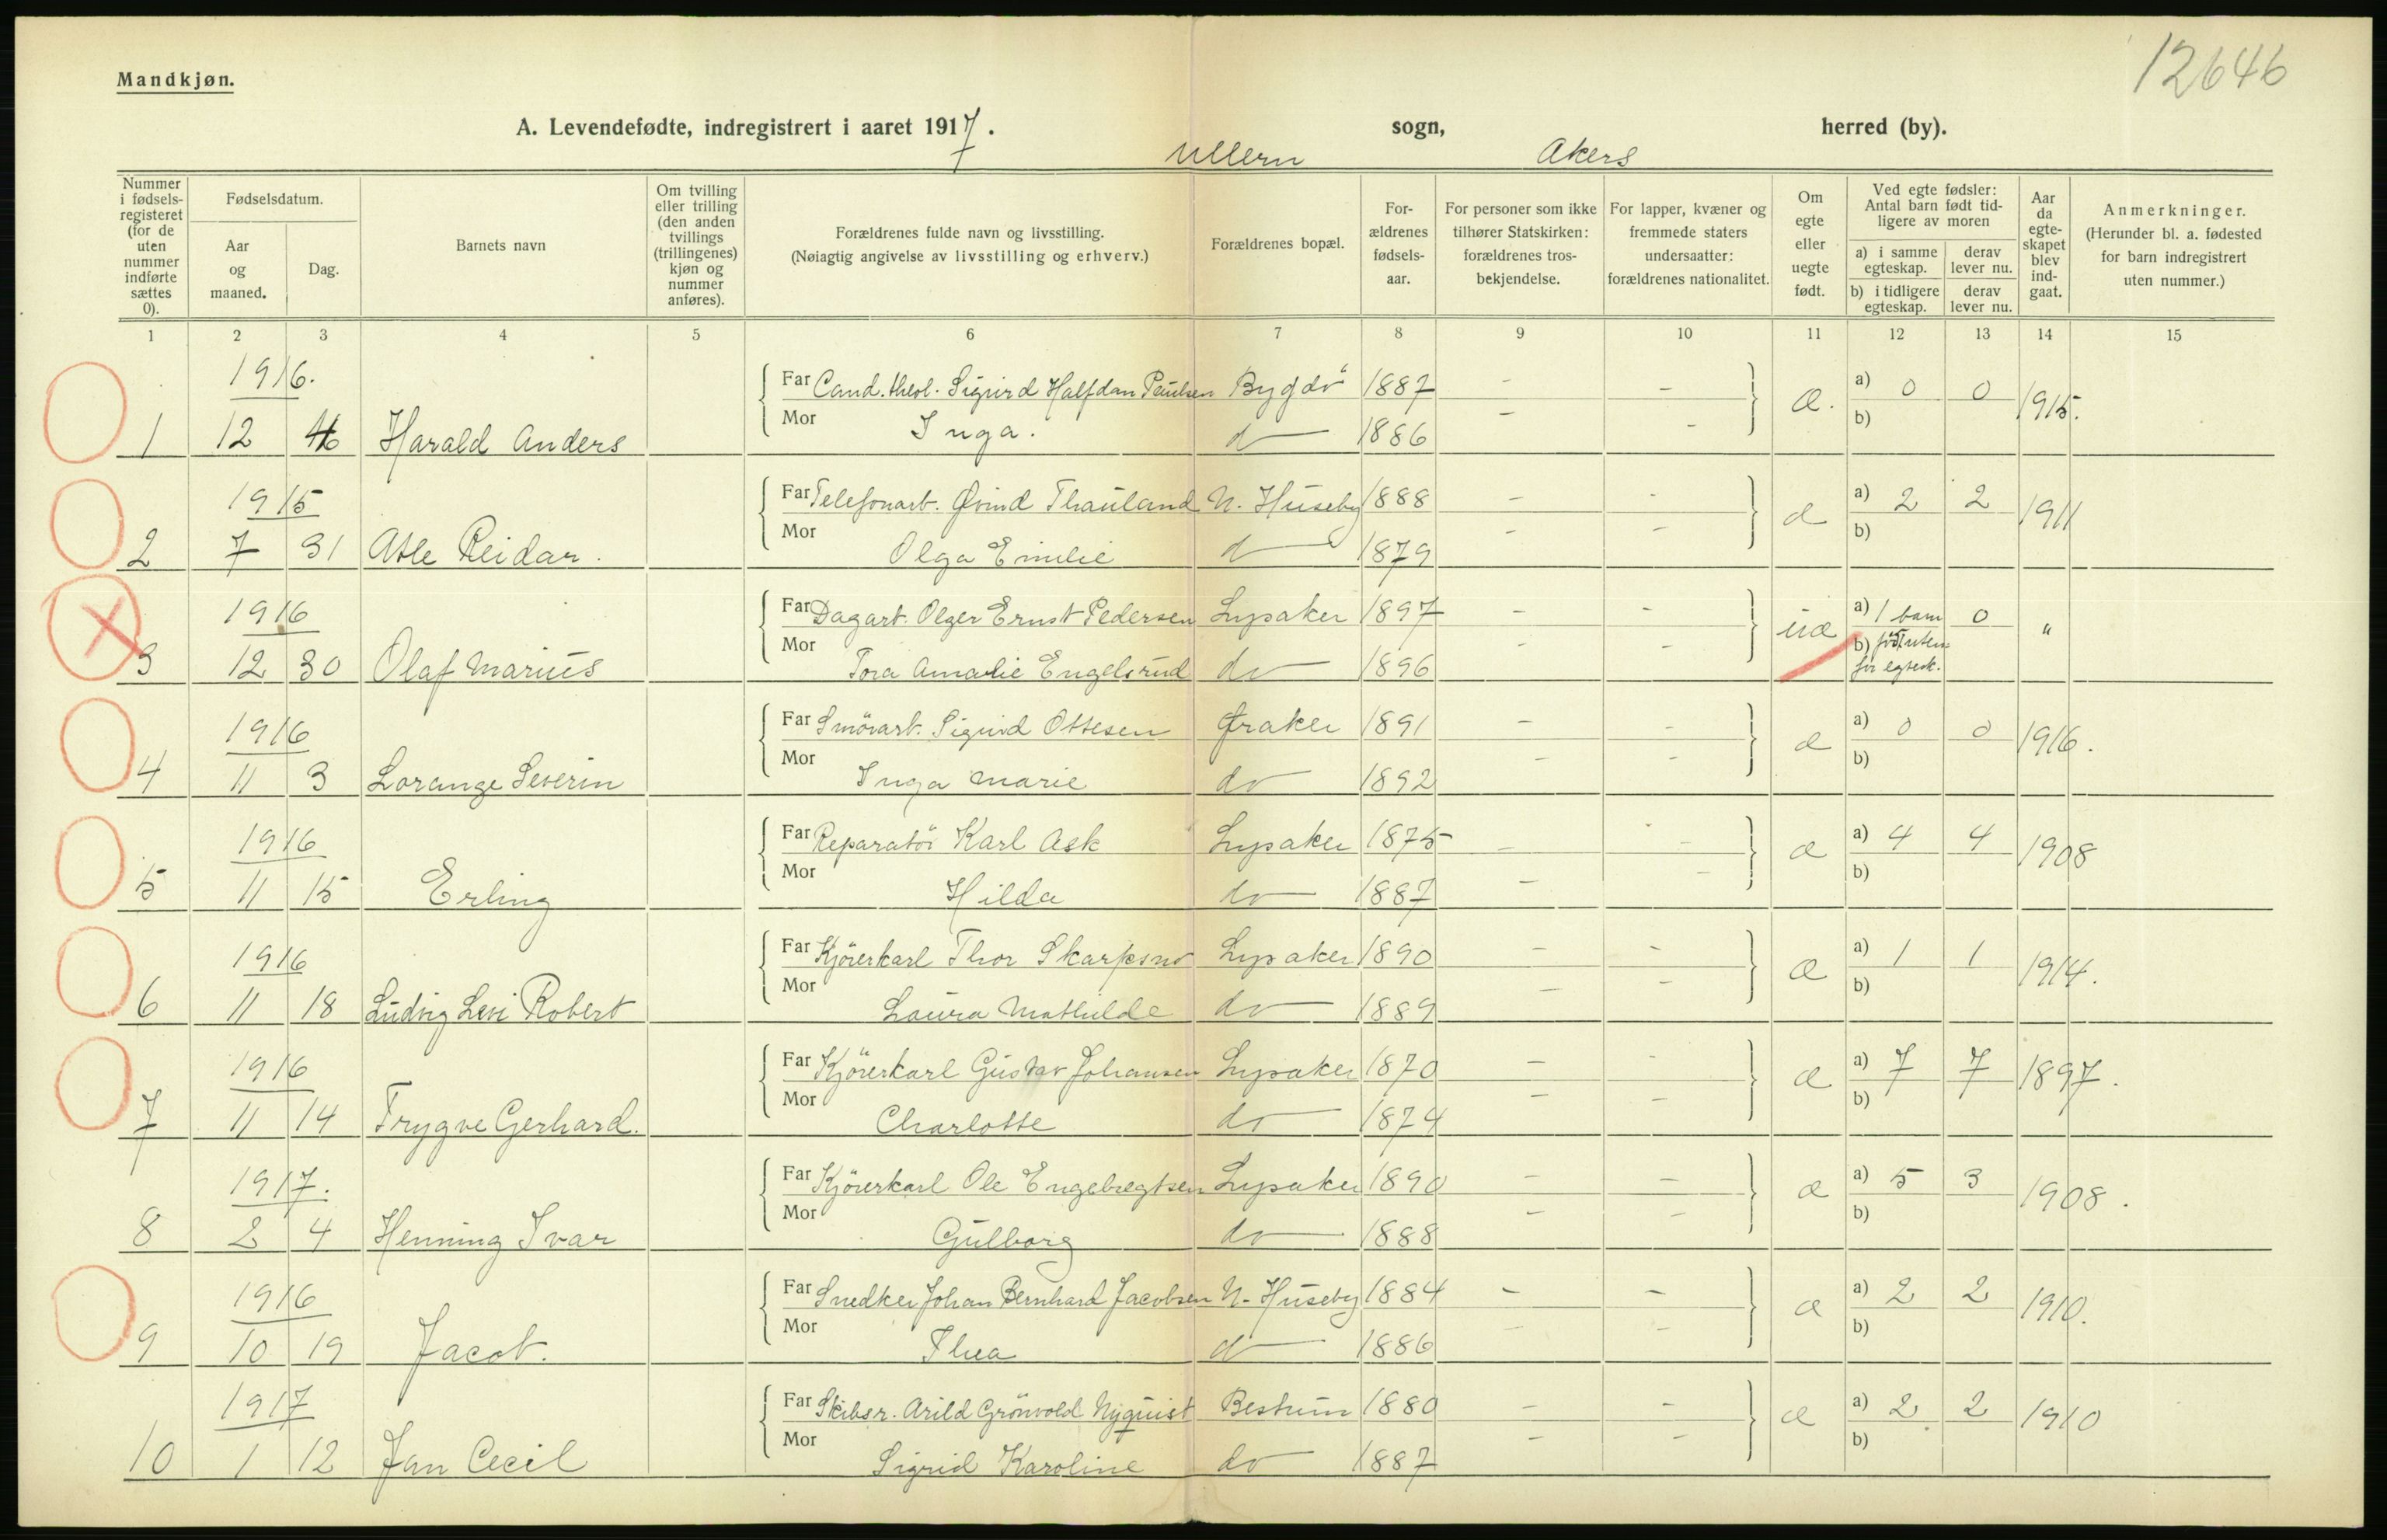 12646
Mandkjøn.
A. Levendefødte, indregistrert i aaret 1917. Ullern sogn, Akers herred (by).
Nummer i fødselsregisteret (for de uten nummer indførte sættes 0).
Fødselsdatum.
Aar og maaned.
Dag.
Barnets navn
Om tvilling eller trilling (den anden tvillings (trillingenes) kjøn og nummer anføres).
Forældrenes fulde navn og livsstilling.
(Nøiagtig angivelse av livsstilling og erhverv.)
Forældrenes bopæl.
Forældrenes fødselsaar.
For personer som ikke tilhører Statskirken: forældrenes trosbekjendelse.
For lapper, kvæner og fremmede staters undersaatter: forældrenes nationalitet.
Om egte eller uegte født.
Ved egte fødsler: Antal barn født tidligere av moren
a) i samme egteskap.
derav lever nu.
b) i tidligere egteskap.
derav lever nu.
Aar da egteskapet blev indgaat.
Anmerkninger.
(Herunder bl. a. fødested for barn indregistrert uten nummer.)
1 2 3 4 5 6 7 8 9 10 11 12 13 14 15
1916.
Far Cand. theol. Sigurd Halfdan Paulsen Bygdö 1887 - - æ. a) 0 0 1915.
Mor Inga. do 1886 - - b)
1 12 Harald Anders
1915
Far Telefonarb. Øvind Thauland N. Huseby 1888 - - æ a) 2 2 1911
Mor Olga Emilie do 1879 - - b)
2 7 31 Atle Reidar.
1916
Far Dagarb. Olger Ernst Pedersen Lysaker 1897 - - uæ a) 1 barn 0 "
Mor Tora Amalie Engelsrud do 1896 - - b) født uten
for egtesk.
3 12 30 Olaf Marius
1916
Far Smörarb. Sigurd Ottesen Øraker 1891 - - æ a) 0 0 1916.
Mor Inga Marie do 1892 - - b)
4 11 3 Lorange Severin
1916
Far Reparatör Karl Ask Lysaker 1875 - - æ a) 4 4 1908
Mor Hilda do 1887 - - b)
5 11 15 Erling
1916
Far Kjörerkarl Thor Skarpsno Lysaker 1890 - - æ a) 1 1 1914.
Mor Laura Mathilde do 1889 - - b)
6 11 18 Ludvig Levi Robert
1916
Far Kjörerkarl Gustav Johansen Lysaker 1870 - - æ a) 7 7 1897.
Mor Charlotte do 1874 - - b)
7 11 14 Trygve Gerhard.
1917.
Far Kjörerkarl Ole Engebregtsen Lysaker 1890 - - æ a) 5 3 1908.
Mor Gulborg do 1888 - - b)
8 2 4 Henning Ivar
1916
Far Snedker Johan Bernhard Jacobsen N. Huseby 1884 - - æ a) 2 2 1910.
Mor Thea do 1886 - - b)
9 10 19 Jacob.
1917
Far Skibsr. Arild Grönvold Nyquist Bestum 1880 - - æ a) 2 2 1910
Mor Sigrid Karoline do 1887 - - b)
10 1 12 Jan Cecil